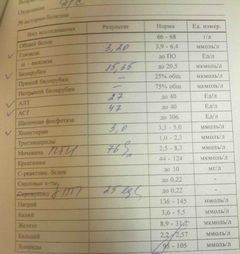 Отделение
№ истории болезни
Результат Норма Ед. измер.
Общий белок 66 - 68 г/л
Глюкоза 5,20 3,9 - 6,4 ммоль/л
α - амилаза до ПО Ед/л
Билирубин 15,35 до 20,5 мкмоль/л
Прямой билирубин — 25% общ. мкмоль/л
Непрямой билирубин — 75% общ. мкмоль/л
АЛТ 27 до 40 Ед/л
АСТ 47 до 40 Ед/л
Щелочная фосфатаза до 306 Ед/л
Холестерин 5,0 ммоль/л
Триглицериды ммоль/л
Мочевина 2,5 - 8,3 ммоль/л
Креатинин 44 - 124 мкмоль/л
С-реактивн. белок до 10 мг/л
до 0,22 -
до 0,22 -
Натрий 136 - 145 ммоль/л
Калий 3,6 - 5,5 ммоль/л
Железо мкмоль/л
Кальций ммоль/л
Хлориды 95 - 105 ммоль/л